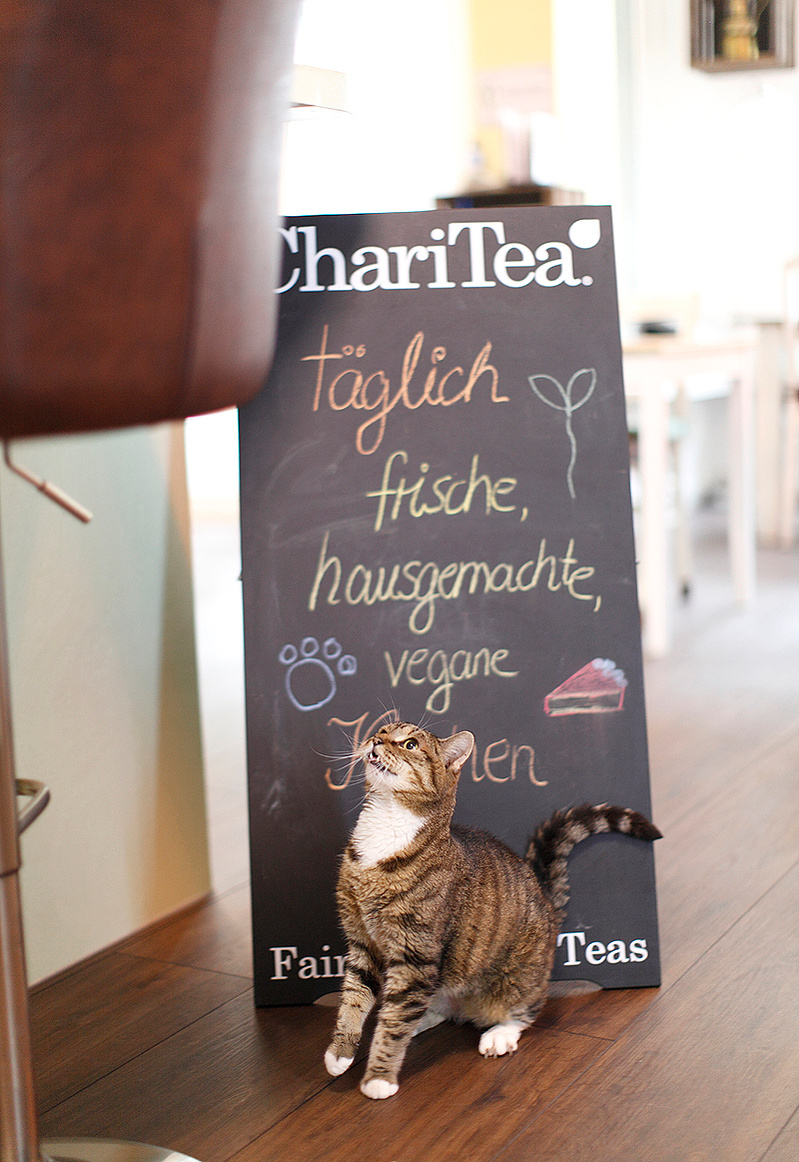 ChariTea.
täglich
frische,
hausgemachte,
vegane
Teas